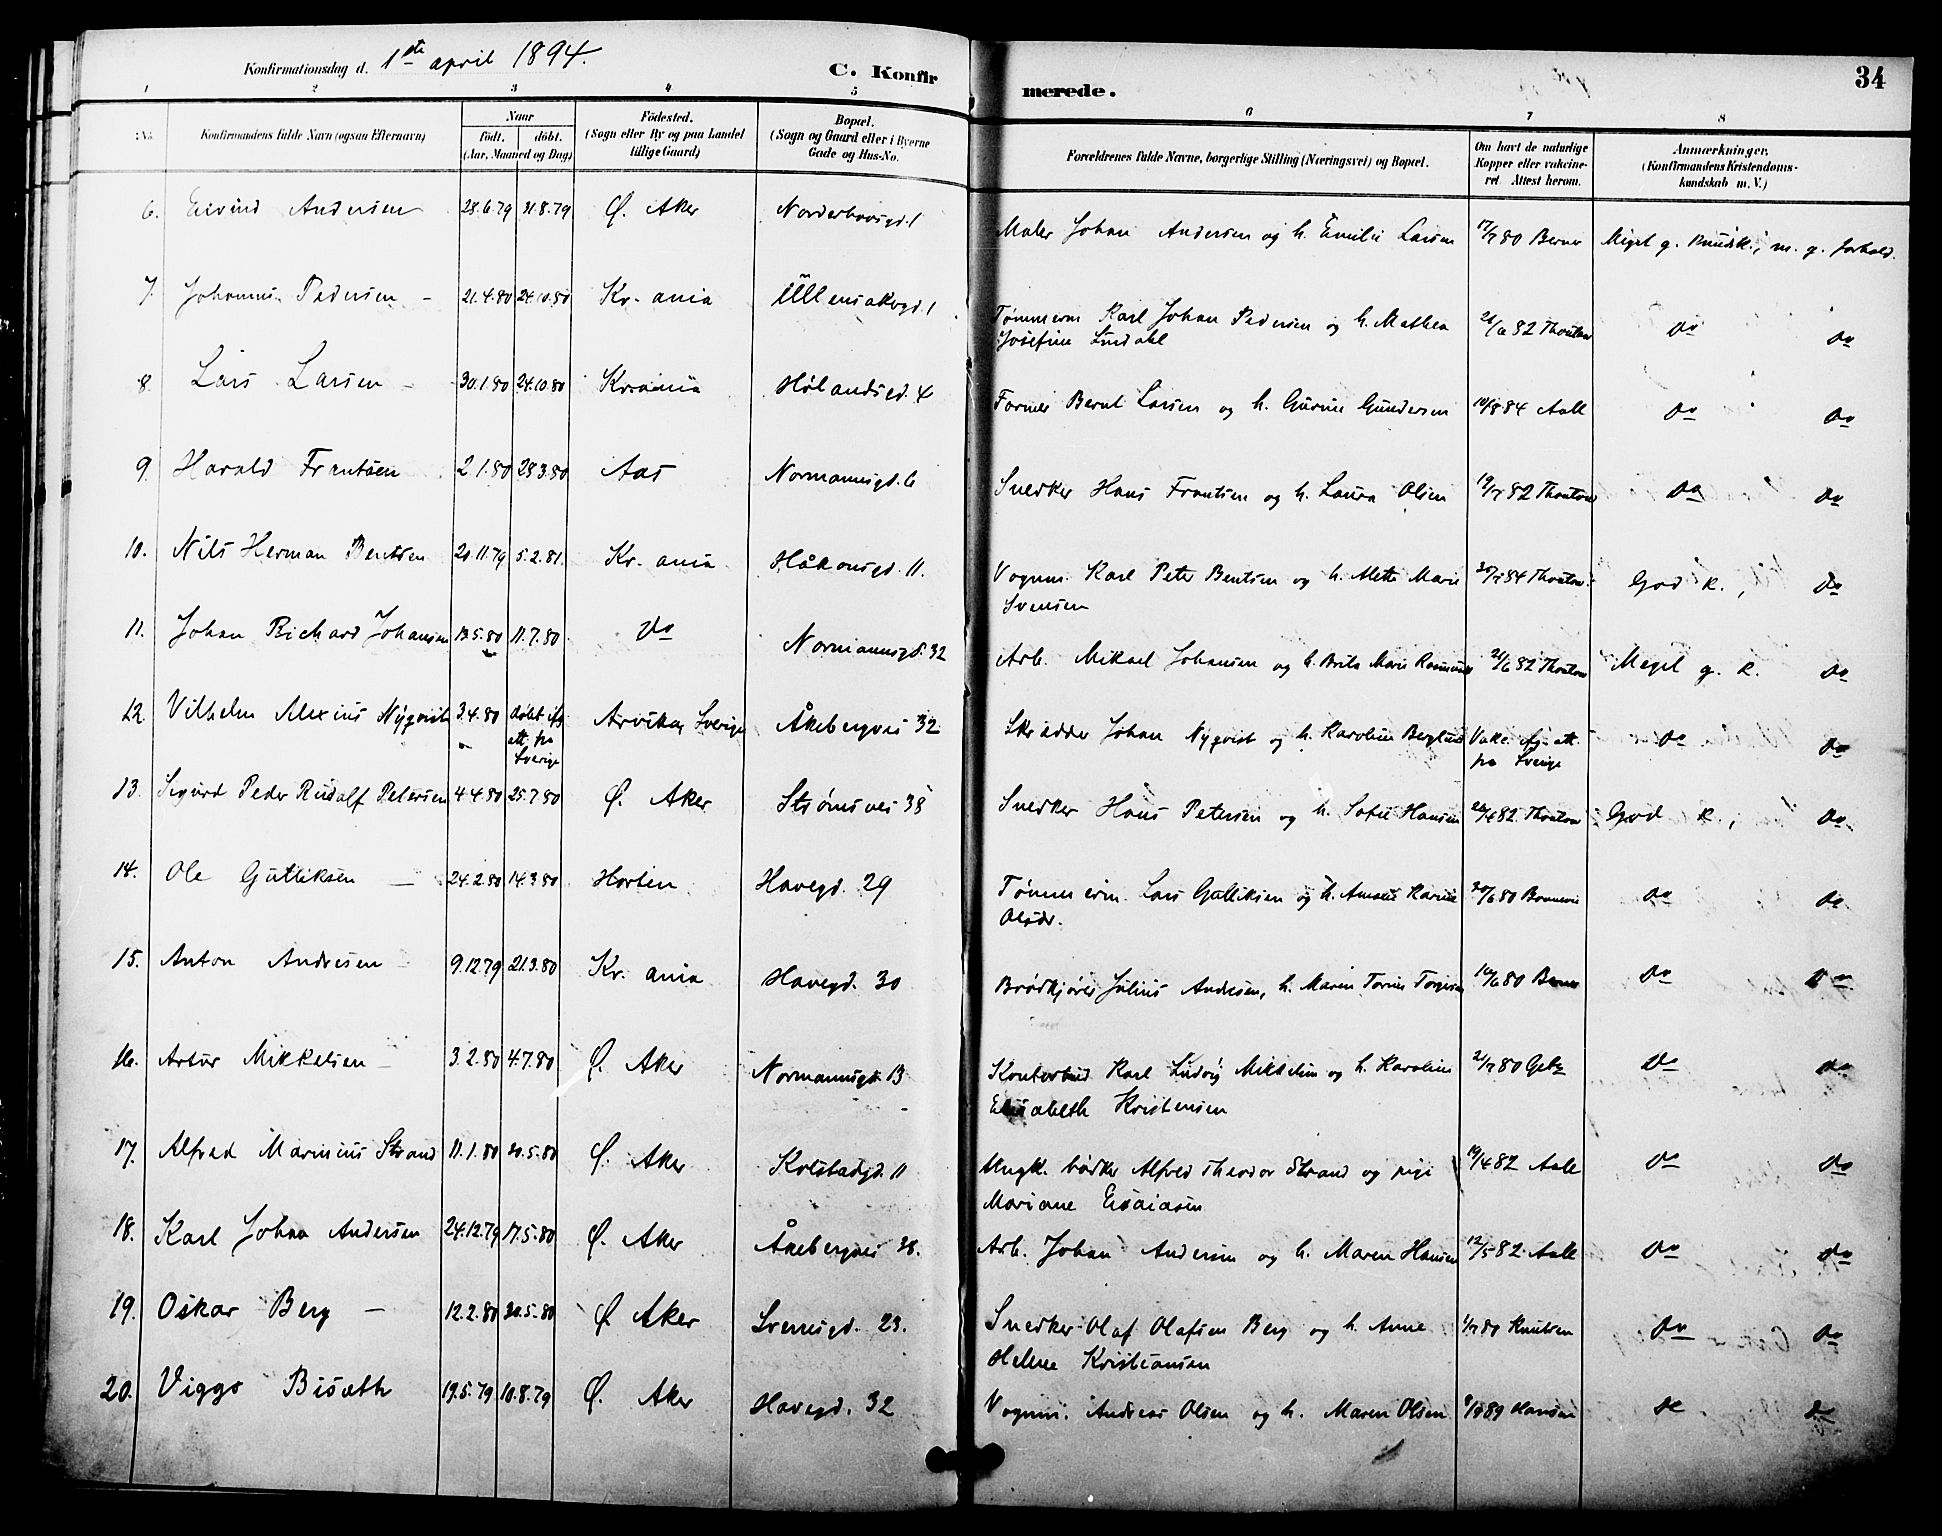 Konfirmationsdag d. 1ste april 1894.
C. Konfir
merede.
34
1 2 3 4 5 6 7 8
No.
Konfirmandens fulde Navn (ogsaa Efternavn)
Naar
født. døbt.
(Aar, Maaned og Dag)
Fødested.
(Sogn eller By og paa Landet
tillige Gaard)
Bopæl.
(Sogn og Gaard eller i Byerne
Gade og Hus-No.
Forældrenes fulde Navne, borgerlige Stilling (Næringsvei) og Bopæl.
Om havt de naturlige
Kopper eller vakcine-
ret. Attest herom.
Anmærkninger.
(Konfirmandens Kristendoms-
kundskab m. V.)
6. Eivind Andersen 28.6.79 31.8.79 Ø. Aker Norderhovsgd. 1 Maler Johan Andersen og h. Emilie Larsen 17/7 80 Berner Meget g. kundsk.; m. g. forhold.
7. Johannes Pedersen - 21.4.80 24.10.80 Kr.ania Ullensakergd. 1 Tømmerm Karl Johan Pedersen og h. Mathea
Josefine Lindahl 21/6 82 Thoutow do do
8. Lars Larsen - 30.1.80 24.10.80 Kr.ania Hølandsgd. 4 Former Bernt Larsen og h. Gurine Gundersen 10/8 84 Aall do do
9. Harald Frantsen 2.1.80 28.3.80 Aas Normannsgd. 6 Snedker Hans Frantsen og h. Laura Olsen 19/7 82 Thoutow do do
10. Nils Herman Bentsen 20.11.79 5.2.81. Kr.ania Håkonsgd. 11. Vognm. Karl Peter Bentsen og h. Alette Marie
Svensen 30/7 84 Thoutow God k., do
11. Johan Richard Johansen 13.5.80 11.7.80 do Normannsgd. 32 Arb. Mikael Johansen og h. Brita Marie 21/6 82 Thoutow Meget g. k. do
12. Vilhelm Alexius Nyqvist 3.4.80 døbt ifg.
att. fra
Sverige Arvika, Sverige Åkebergvei 32 Skrædder Johan Nyqvist og h. Karoline Berglund Vakc. ifg. att.
fra Sverige do do
13. Sigurd Peder Rudolf Petersen 4.4.80 25.7.80 Ø. Aker Strømsvei 38 Snedker Hans Petersen og h. Sofie Hansen 26/4 82 Thoutow God k., do
14. Ole Gulliksen - 24.2.80 14.3.80 Horten Havegd. 29 Tømmerm. Lars Gulliksen og h. Amalie Karine
Olsdr. 20/6 80 do do
15. Anton Andresen - 9.12.79 21.3.80 Kr.ania Havegd. 30 Brødkjører Julius Andresen, h. Maren Torine 10/6 80 Berner do do
16. Artur Mikkelsen - 3.2.80 4.7.80 Ø. Aker Normannsgd. 13 Kontorbud Karl Ludvig Mikkelsen og h. Karoline
Elisabeth Kristensen 21/7 80 do do
17. Alfred Marinius Strand 11.1.80 20.5.80 Ø. Aker Kolstadgd. 11 Ungk. bødker Alfred Theodor Strand og pige
Mariane Esaiasen 19/4 82 Aall do do
18. Karl Johan Andersen 24.12.79 17.5.80 Ø. Aker Åkebergvei 38. Arb. Johan Andersen og h. Maren Hansen 12/5 82 Aall do do
19. Oskar Berg - 12.2.80 30.5.80 Ø. Aker Sverresgd. 23. Snedker Olaf Olafsen Berg og h. Anne
Helene Kristiansen 1/7 80 Knutsen do do
20. Viggo Bisæth 19.5.79 10.8.79 Ø. Aker Havegd. 32 Vognm. Andreas Olsen og h. Maren Olsen 9/9 89 Hansen do do